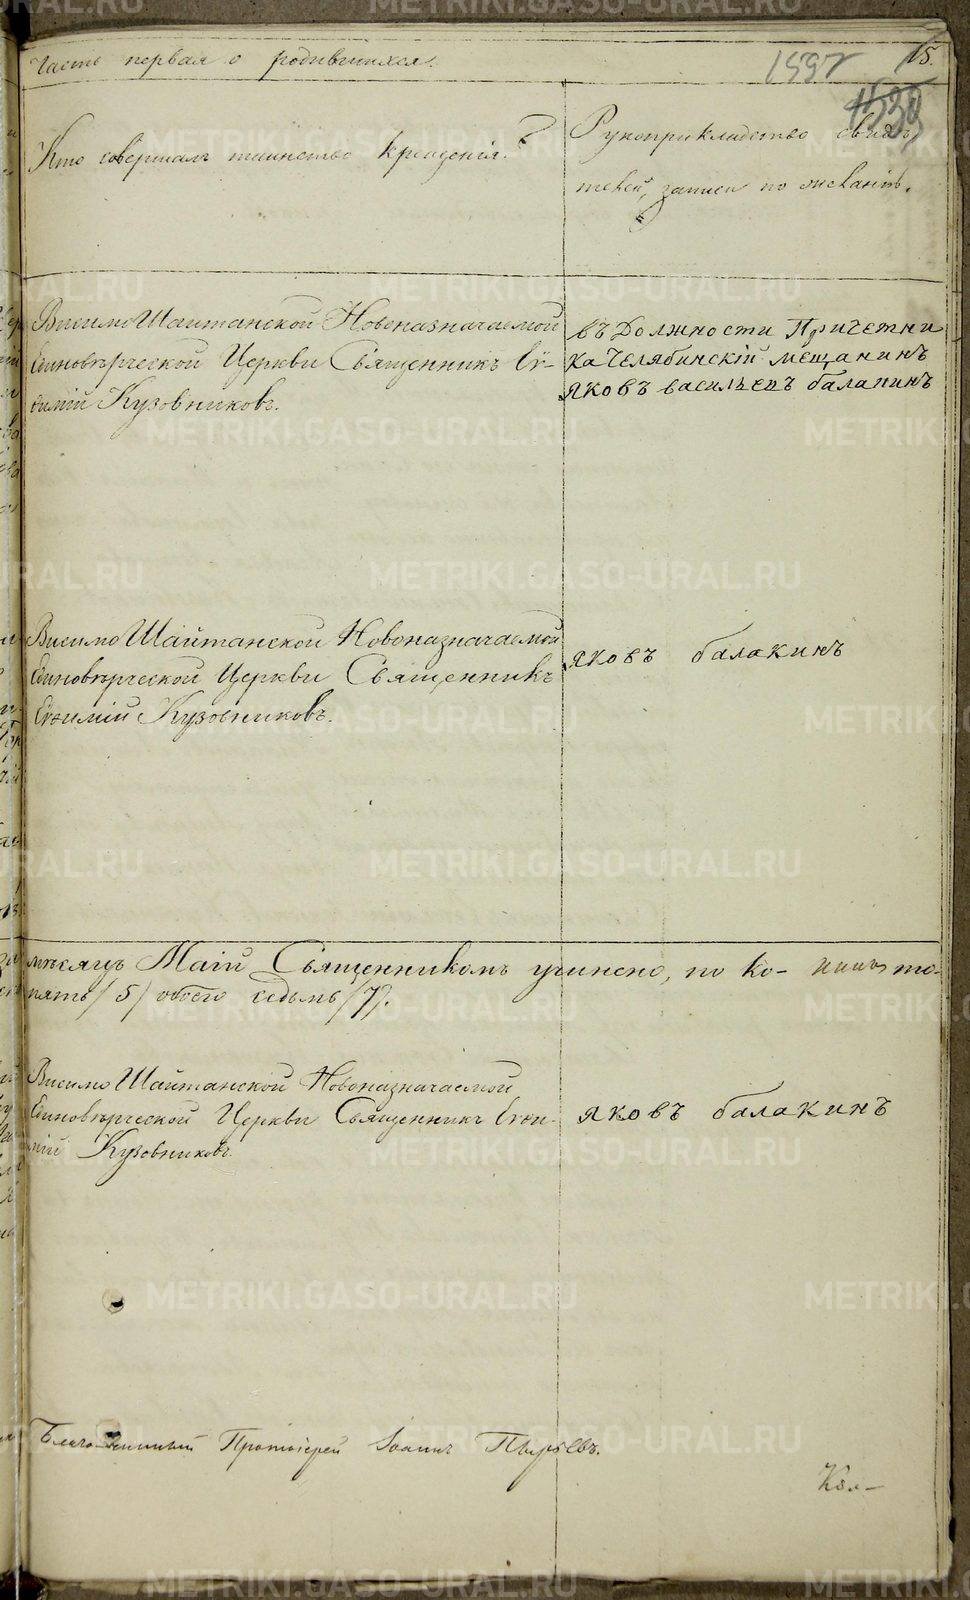 Часть первая о родившихся.
1597
15.
Кто совершалъ таинство крещенія?
Рукоприкладство свидѣ-
телей, записи по желанію.
Висимо Шайтанской Новоназначаемой
Единовѣрческой Церкви Священникъ Ев-
ѳимій Кузовниковъ.
въ Должности Причетни
ка Челябинскій мещанинъ
яковъ васильевъ балакинъ
Висимо Шайтанской Новоназначаемой
Единовѣрческой Церкви Священникъ
Евѳимій Кузовниковъ.
яковъ балакинъ
мѣсяцъ Маій Священникомъ учинено, по ко-
пять /5/ обоего седмь /7/.
Висимо Шайтанской Новоназначаемой
Единовѣрческой Церкви Священникъ Евѳи-
мій Кузовниковъ.
яковъ балакинъ
Благочинный Протоіерей Іоаннъ Пырьевъ.